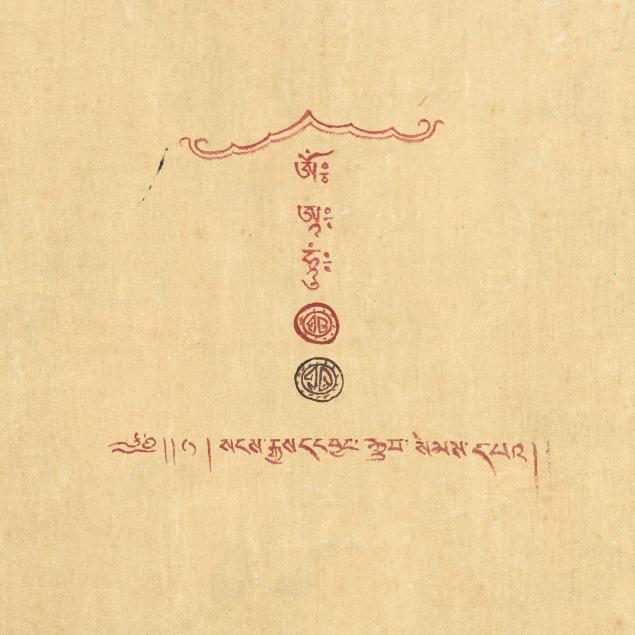 ཨོཾ༔
ཨཱ༔
ཧཱུྃ༔
༄༅། །༡། སངས་རྒྱས་དང་བྱང་ཆུབ་སེམས་དཔའ།